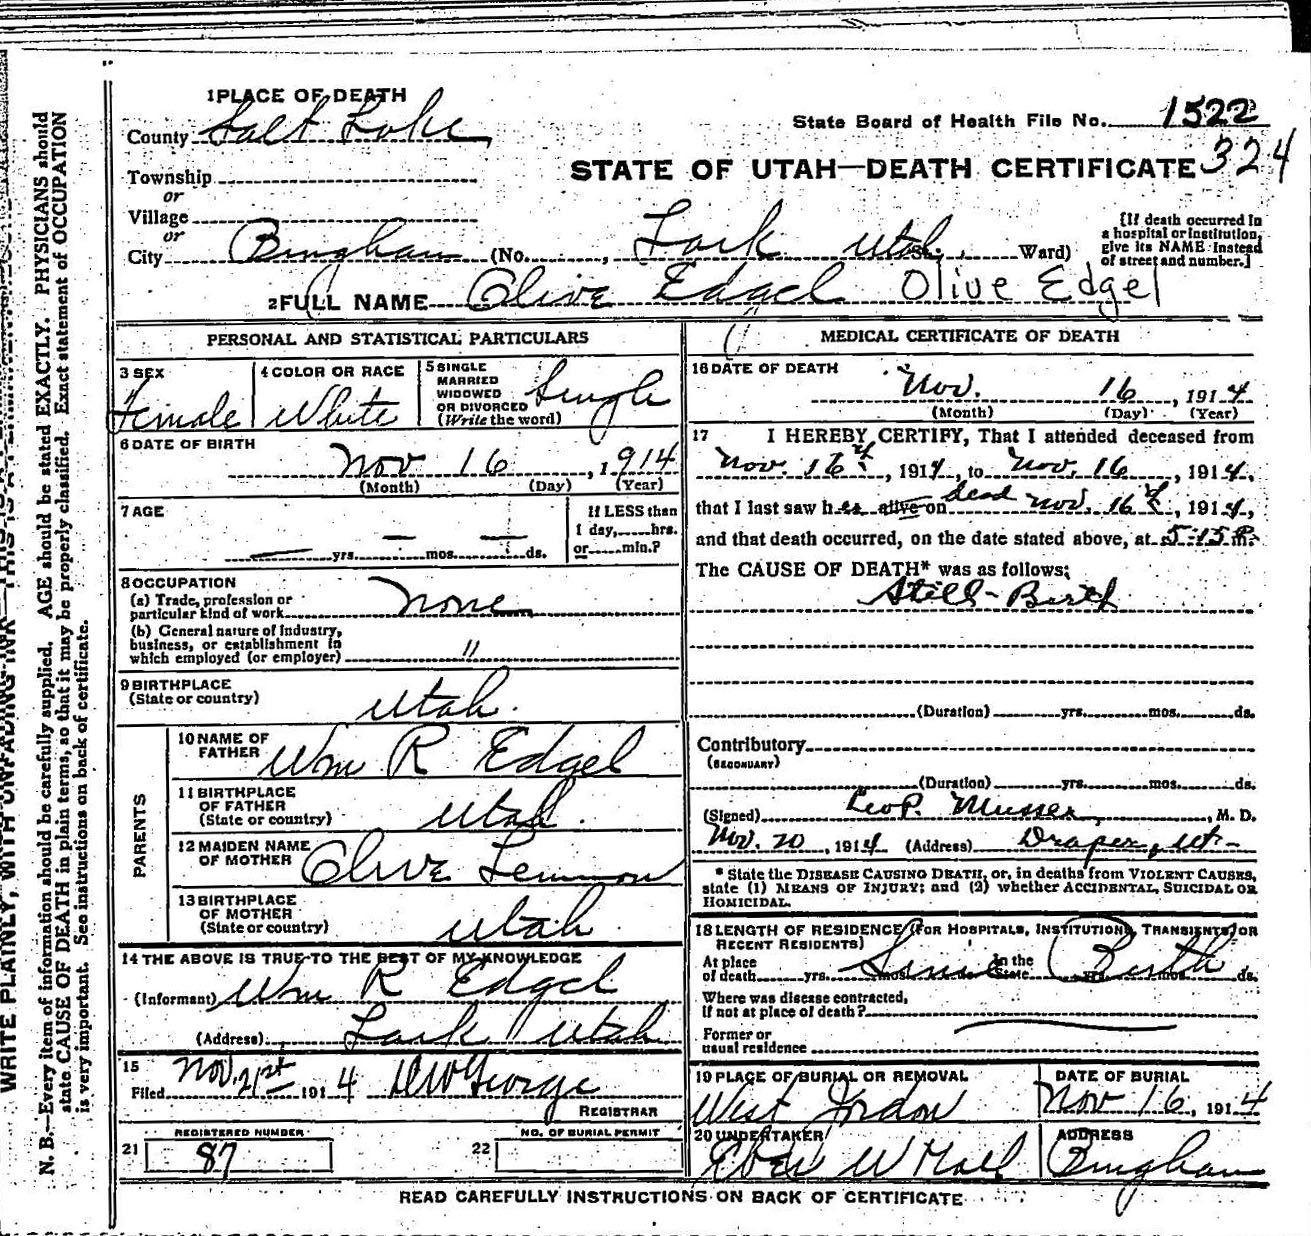 1 PLACE OF DEATH
County Salt Lake
State Board of Health File No. 1522
Township
STATE OF UTAH—DEATH CERTIFICATE 324
or
Village
or
City Bingham (No. , Lark Utah St., Ward)
[If death occurred in a hospital or institution, give its NAME instead of street and number.]
2 FULL NAME Olive Edgel Olive Edgel
PERSONAL AND STATISTICAL PARTICULARS
3 SEX Female
4 COLOR OR RACE White
5 SINGLE MARRIED WIDOWED OR DIVORCED (Write the word) Single
6 DATE OF BIRTH
Nov 16, 1914
(Month) (Day) (Year)
7 AGE
— yrs. — mos. — ds.
If LESS than 1 day, hrs. or min.?
8 OCCUPATION
(a) Trade, profession or particular kind of work None
(b) General nature of industry, business, or establishment in which employed (or employer) "
9 BIRTHPLACE
(State or country) Utah.
PARENTS
10 NAME OF FATHER Wm R Edgel
11 BIRTHPLACE OF FATHER (State or country) Utah.
12 MAIDEN NAME OF MOTHER Olive Lemmon
13 BIRTHPLACE OF MOTHER (State or country) Utah
14 THE ABOVE IS TRUE TO THE BEST OF MY KNOWLEDGE
(Informant) Wm R Edgel
(Address) Lark Utah
15
Filed Nov. 21st 1914 DW George
REGISTRAR
21 REGISTERED NUMBER 87
22 NO. OF BURIAL PERMIT
MEDICAL CERTIFICATE OF DEATH
16 DATE OF DEATH
Nov. 16, 1914
(Month) (Day) (Year)
17 I HEREBY CERTIFY, That I attended deceased from
Nov. 16th, 1914, to Nov. 16, 1914,
that I last saw her alive on dead Nov. 16th, 1914,
and that death occurred, on the date stated above, at 5:15 P.m.
The CAUSE OF DEATH* was as follows:
Still-Birth
(Duration) yrs. mos. ds.
Contributory
(SECONDARY)
(Duration) yrs. mos. ds.
(Signed) Leo P. Musser, M. D.
Nov. 20, 1914 (Address) Draper, Ut-
* State the DISEASE CAUSING DEATH, or, in deaths from VIOLENT CAUSES, state (1) MEANS OF INJURY; and (2) whether ACCIDENTAL, SUICIDAL OR HOMICIDAL.
18 LENGTH OF RESIDENCE (FOR HOSPITALS, INSTITUTIONS, TRANSIENTS OR RECENT RESIDENTS)
At place of death yrs. mos. Since In the State yrs. mos. ds. (Birth
Where was disease contracted, if not at place of death?
Former or usual residence
19 PLACE OF BURIAL OR REMOVAL
West Jordon
DATE OF BURIAL
Nov 16, 1914
20 UNDERTAKER
Eber W Hall
ADDRESS
Bingham
READ CAREFULLY INSTRUCTIONS ON BACK OF CERTIFICATE
N. B.—Every item of information should be carefully supplied. AGE should be stated EXACTLY. PHYSICIANS should
state CAUSE OF DEATH in plain terms, so that it may be properly classified. Exact statement of OCCUPATION
is very important. See instructions on back of certificate.
WRITE PLAINLY, WITH UNFADING INK—THIS IS A